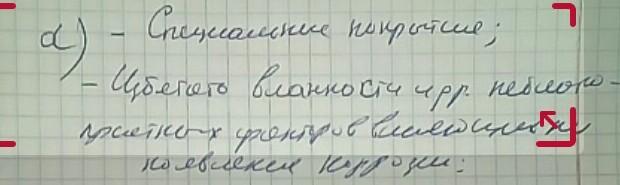 d) - Специальные покрытие;
- Избегать влажности и др. неблаго-
приятных факторов влияющих на
появление коррозии: